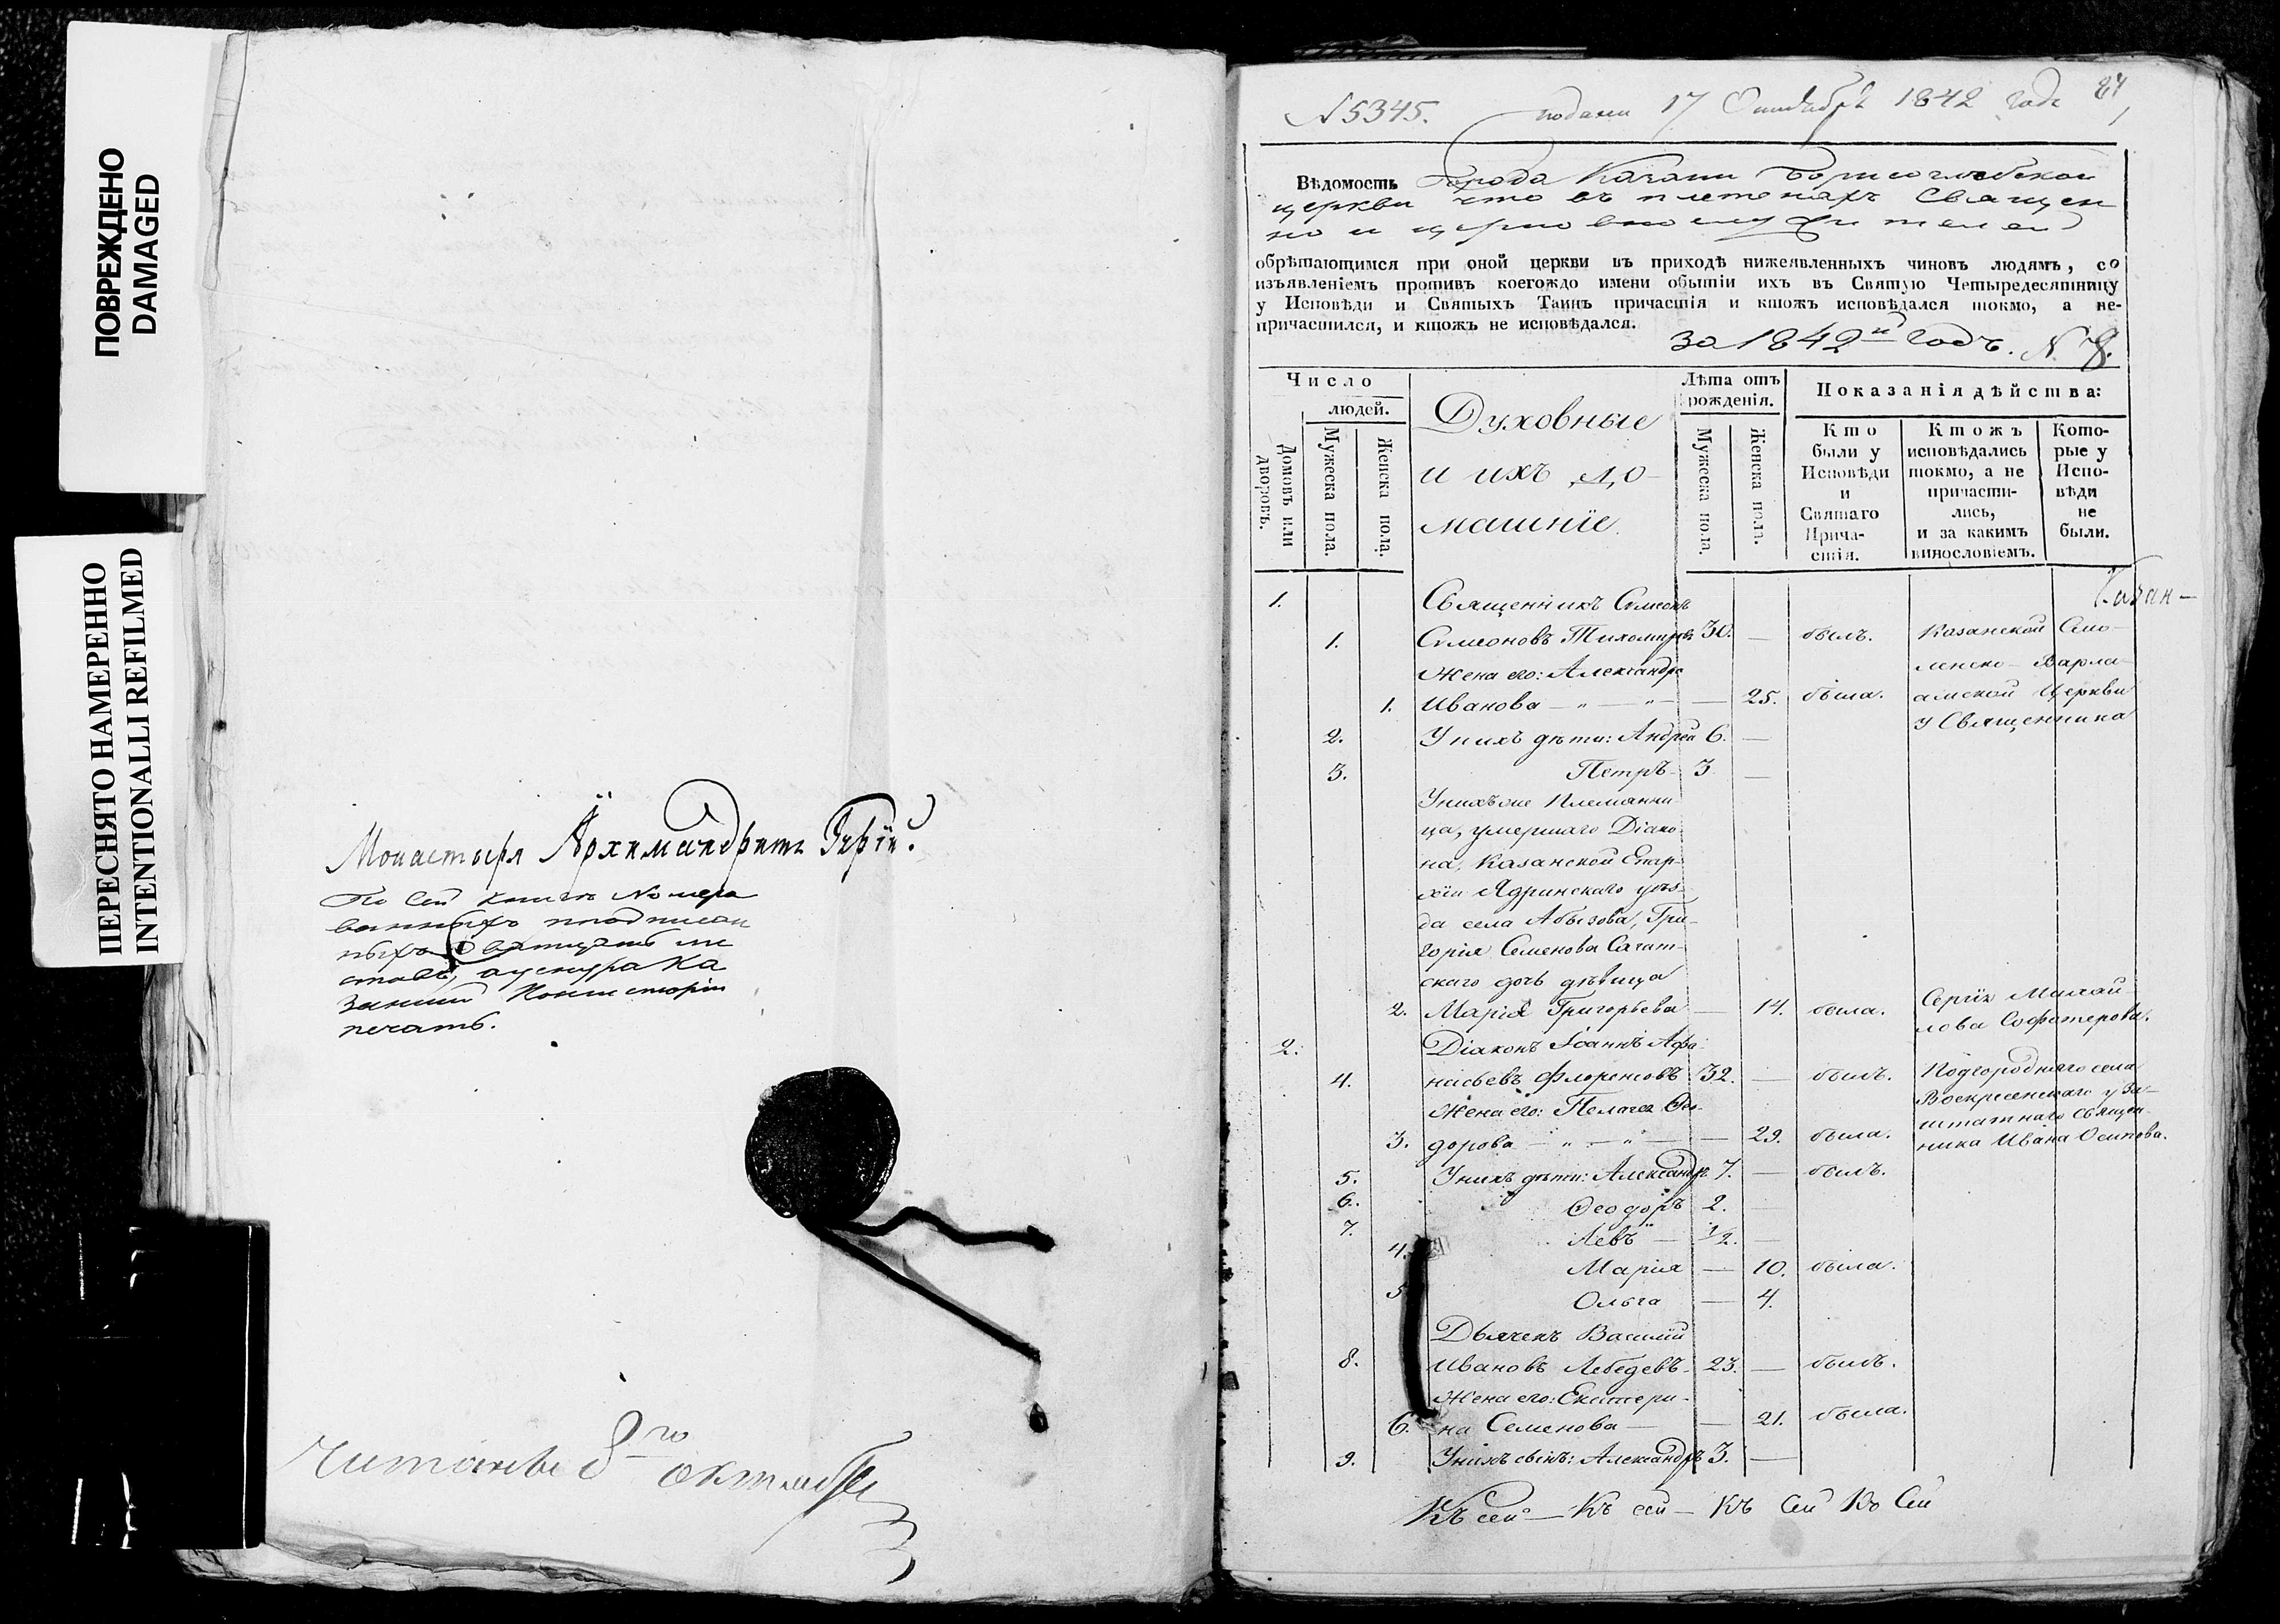 ПОВРЕЖДЕНО
DAMAGED
ПЕРЕСНЯТО НАМЕРЕННО
INTENTIONALLI REFILMED
Монастыря Архимандритъ Гурій.
По сей книге Номеро
ванныхъ подписан
ныхъ ли
стовъ, а у снура Ка
занской Консисторіи
печать.
Читаны 8го октября
№ 5345. подани 17 Октября 1842 года 84
Вѣдомость Города Казани Борисоглебской
церкви что въ плетеняхъ Священ
но и церковнослужителей
обрѣтающимся при оной церкви въ приходѣ нижеявленныхъ чиновъ людямъ, со
изъявленіемъ противъ коегождо имени обытіи ихъ въ Святую Четыредесятницу
у Исповѣди и Святыхъ Таинъ причастія и ктожъ исповѣдался токмо, а не-
причастился, и ктожъ не исповѣдался.
за 1842й годъ. № 8.
Число
людей.
Домовъ или дворовъ.
Мужеска пола.
Женска пола.
Духовные
и ихъ до-
машніе.
Лѣта отъ
рожденія.
Мужеска пола.
Женска пола.
Показанія дѣйства:
Кто
были у
Исповѣди
и
Святаго
Прича-
стія.
Ктожъ
исповѣдались
токмо, а не
причасти-
лись,
и за какимъ
винословіемъ.
Кото-
рые у
Испо-
вѣди
не
были.
1. Священникъ Симеонъ Казан-
1. Симеоновъ Тихомировъ 30. — былъ. Казанской Смо-
Жена его: Александра ленско-Варла-
1. Иванова — " — " — — 25. была. амской Церкви
у Священника
2. У нихъ дѣти: Андрей 6. —
3. Петръ — 3 —
У нихъ же племянни-
ца, умершаго Діако-
на, Казанской Епар-
хіи Ядринскаго уѣз-
да села Абызова, Гри-
горія Семенова Сагат-
скаго дочь дѣвица
2. Марія Григорьева — 14. была. Сергія Михай-
лова Софотерова.
2. Діаконъ Іоаннъ Афа-
4. насьевъ Флоренсовъ 32. — былъ. Подгороднаго села
Жена его: Пелагея Ѳео- Воскресенскаго у За-
штатнаго Священ-
3. дорова — " — " — — 29. была. ника Ивана Осипова.
5. У нихъ дѣти: Александръ 7. — былъ.
6. Ѳеодоръ 2. —
7. Левъ — 1/2. —
4. Марія — 10. была.
5 Ольга — 4.
Дьячекъ Василій
8. Ивановъ Лебедевъ — 23. — былъ.
Жена его: Екатери-
6. на Семенова — — 21. была.
9. У нихъ сынъ: Александръ 3. —
Къ сей — Къ сей — Къ Сей Ко Сей